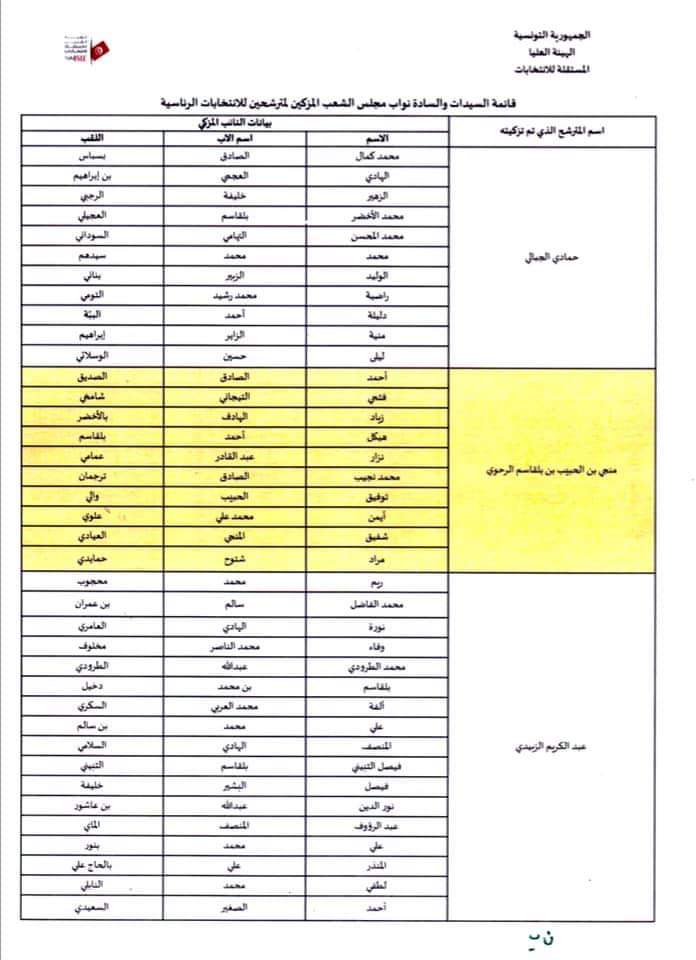 الجمهورية التونسية
الهيئة العليا
المستقلة للانتخابات
ISIE
قائمة السيدات والسادة نواب مجلس الشعب المزكين لمترشحين للانتخابات الرئاسية
اسم المترشح الذي تم تزكيته بيانات النائب المزكي
الاسم اسم الأب اللقب
حمادي الجبالي
محمد كمال الصادق بسباس
الهادي العجمي بن إبراهيم
الزهير خليفة الرجبي
محمد الأخضر بلقاسم العجيلي
محمد المحسن التهامي السوداني
محمد محمد سيدهم
الوليد الزبير بناني
راضية محمد رشيد التومي
دليلة أحمد الببّة
منية الزاير إبراهيم
ليلى حسين الوسلاتي
منجي بن الحبيب بن بلقاسم الرحوي
أحمد الصادق الصديق
فتحي التيجاني شامخي
زياد الهادف بالأخضر
هيكل أحمد بلقاسم
نزار عبد القادر عمامي
محمد نجيب الصادق ترجمان
توفيق الحبيب والي
أيمن محمد علي علوي
شفيق المنجي العيادي
مراد شتوح حمايدي
عبد الكريم الزبيدي
ريم محمد محجوب
محمد الفاضل سالم بن عمران
نورة الهادي العامري
وفاء محمد الناصر مخلوف
محمد الطرودي عبدالله الطرودي
بلقاسم بن محمد دخيل
ألفة محمد العربي السكري
علي محمد بن سالم
المنصف الهادي السلامي
فيصل التبيني بلقاسم التبيني
فيصل البشير خليفة
نور الدين عبدالله بن عاشور
عبد الرؤوف المنصف الماي
علي محمد بنور
المنذر علي بالحاج علي
لطفي محمد النابلي
أحمد الصغير السعيدي